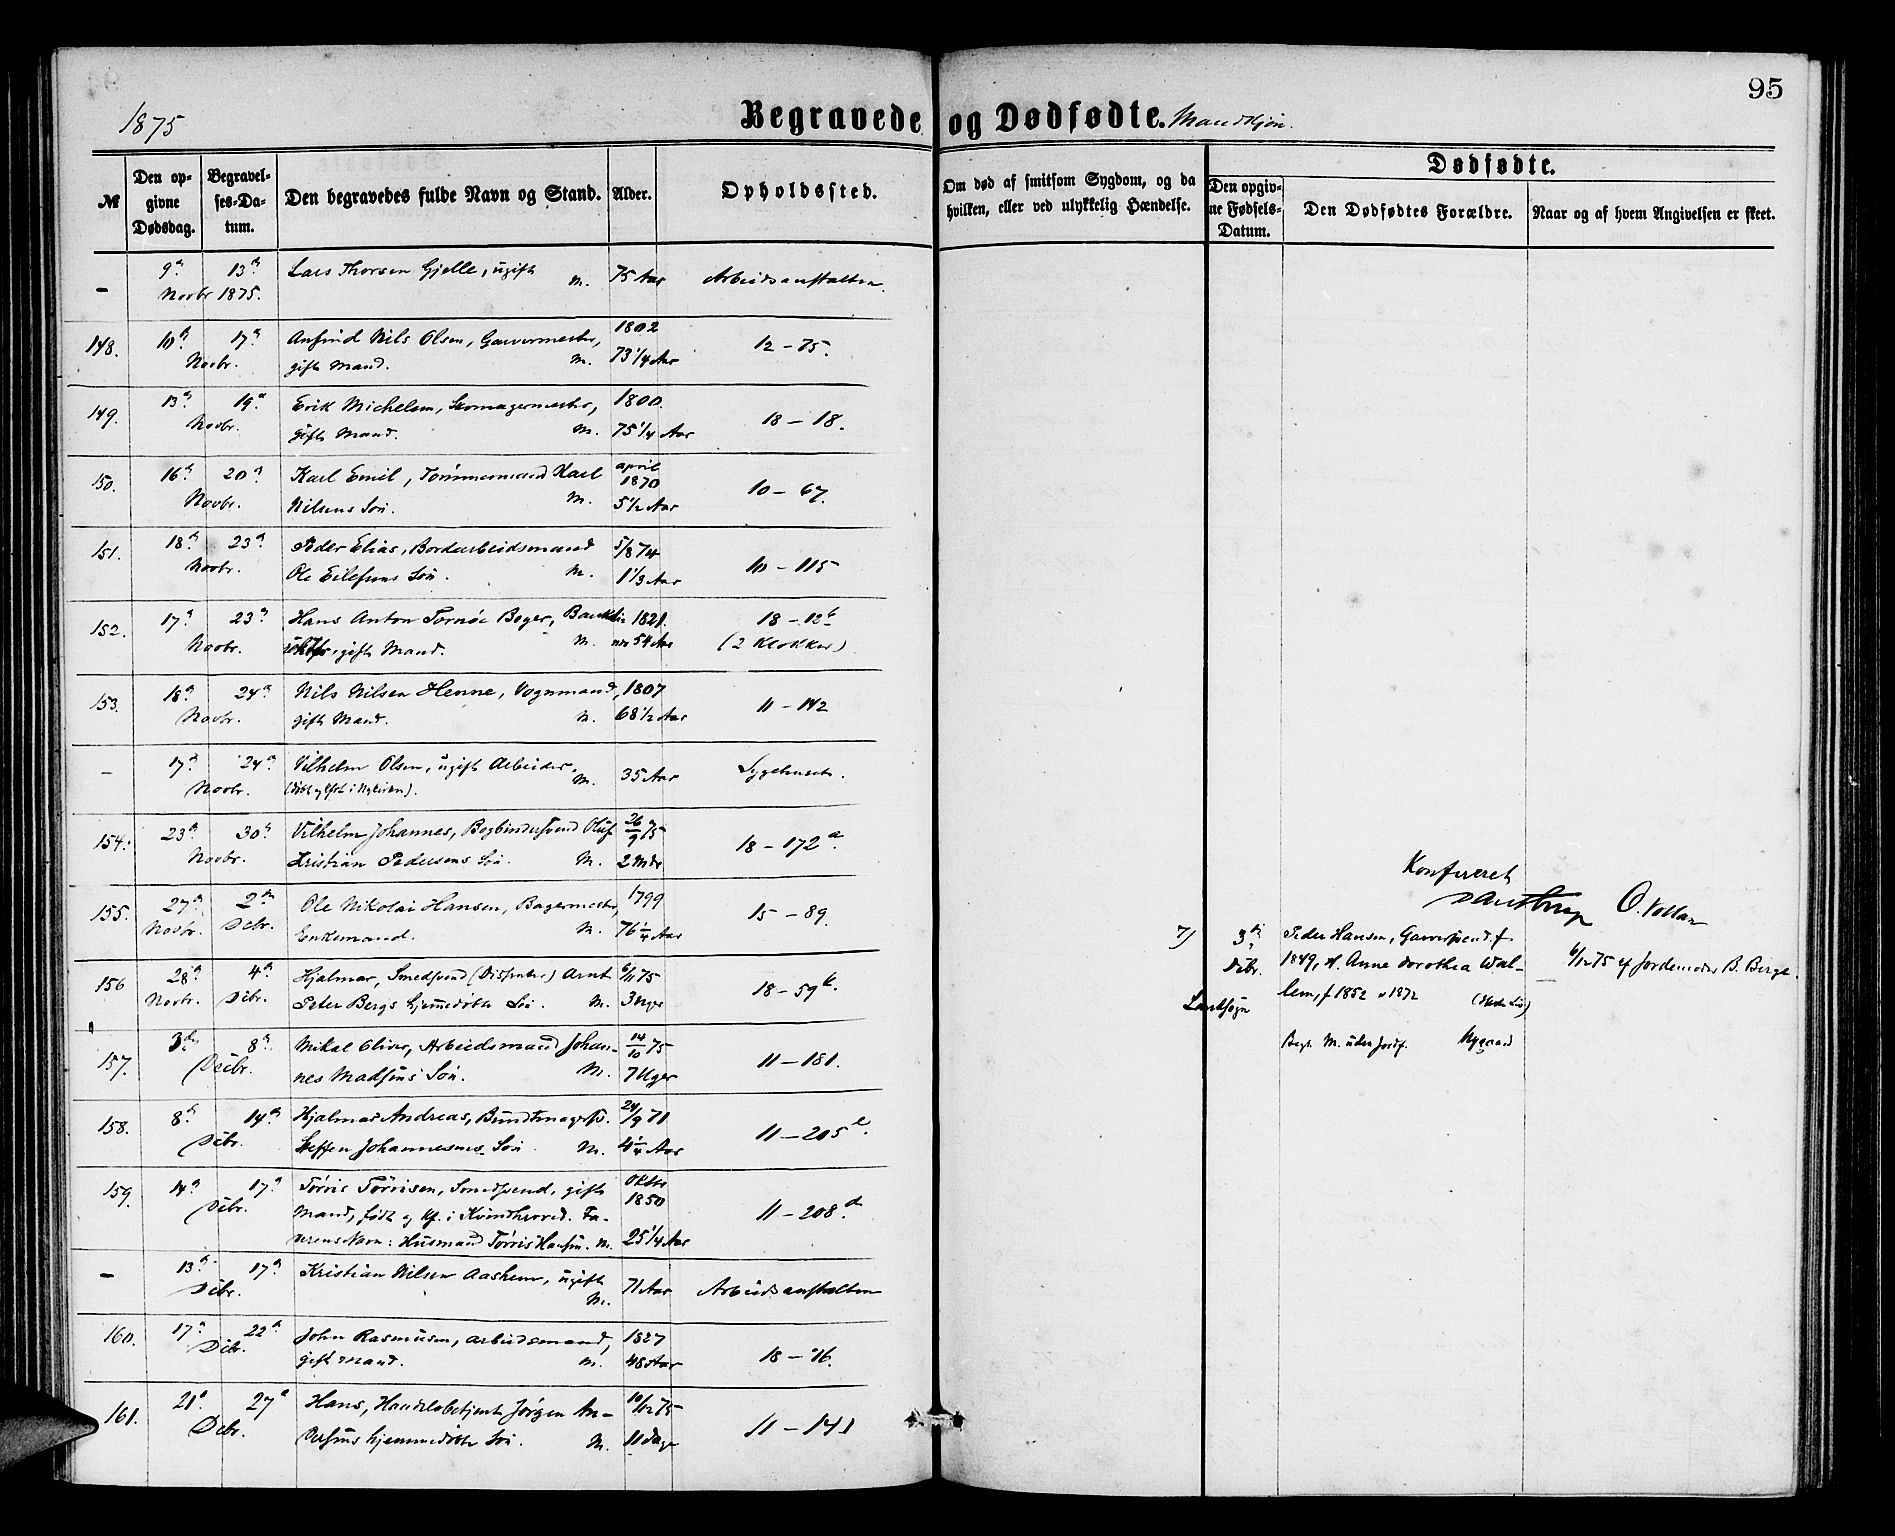 95
1875
Begravede og Dødfødte. Mandkjøn.
№
Den opgivne Dødsdag.
Begravelses-Datum.
Den begravedes fulde Navn og Stand.
Alder.
Opholdssted.
Om død af smitsom Sygdom, og da hvilken, eller ved ulykkelig Hændelse.
Dødfødte.
Den opgivne Fødsels-Datum.
Den Dødfødtes Forældre.
Naar og af hvem Angivelsen er skeet.
– 9de 13de Lars Thorsen Gjelle, ugift 75 Aar Arbeidsanstalten
Novbr 1875. M.
148. 10de 17de Anfind Nils Olsen, Garvermester, 1802 12 – 75.
Novbr. gift Mand. M. 73 1/4 Aar
149. 13de 19de Erik Michelsen, Skomagermester, 1800. 18 – 18.
Novbr. gift Mand. M. 75 1/4 Aar
150. 16de 20de Karl Emil, Tømmermand Karl april 1870 10 – 67.
Novbr. Nilsens Søn. M. 5 1/2 Aar
151. 18de 23de Peder Elias, Bordarbeidsmand 5/8 74 10 – 115
Novbr. Ole Eilefsens Søn. M. 1 1/3 Aar
152. 17de 23de Hans Anton Tornøe Boger, 1821. 18 – 12b
Novbr. gift Mand. M. 54 Aar (2 Klokker)
153. 18de 24de Nils Nilsen Henne, Vognmand, 1807 11 – 142
Novbr. gift Mand. M. 68 1/2 Aar
– 17de 24de Vilhelm Olsen, ugift Arbeider. 35 Aar Sygehuset.
Novbr. M.
154. 23de 30de Vilhelm Johannes, Bogbindersvend Oluf 26/9 75 18 – 172a.
Novbr. Kristian Pedersens Søn. M. 2 Mdr
155. 27de 2den Ole Nikolai Hansen, Bagermester, 1799 15 – 89.
Novbr. Decbr. Enkemand. M. 76 1/4 Aar
156 28de 4de Hjalmar, Smedsvend (Dissenter) Arnt 6/11 75 18 – 59b.
Novbr. Decbr. Peter Bergs hjemmedøbte Søn. M. 3 Uger
157. 3die 8de Mikal Oliver, Arbeidsmand Johan- 14/10 75 11 – 181.
Decbr. nes Madsens Søn. M. 7 Uger
158. 8de 14de Hjalmar Andreas, Bundtmagers. 24/9 71 11 – 205e.
Decbr. Steffen Johannesens Søn. M. 4 1/4 Aar
159. 14de 17de Tørris Tørrisen, Smedsvend, gift Oktbr 1850 11 – 208d.
Decbr. Mand, født og kf. i Kvindherred. Fa-
derens Navn: Husmand Tørris Hansen. M. 25 1/4 Aar
– 13de 17de Kristian Nilsen Aasheim, ugift 71 Aar Arbeidsanstalten
Decbr. M.
160. 17de 22de John Rasmusen, Arbeidsmand, 1827 18 – 76.
Decbr. gift Mand. M. 48 Aar
161. 21de 27de Hans, Handelsbetjent Jørgen An- 10/12 75 11 – 141
Decbr. dersens hjemmedøbte Søn. M. 11 Dage
Konfereret
O. Vollan
7) 3die Peder Hansen, Garversvend f.
Decbr. 1849, & Anne Dorothea Wal- 6/12 75 af Jordemoder B. Berge.
Landsogn lem, f 1852 v 1872
Begr. M. uden Jordf. Nygaard